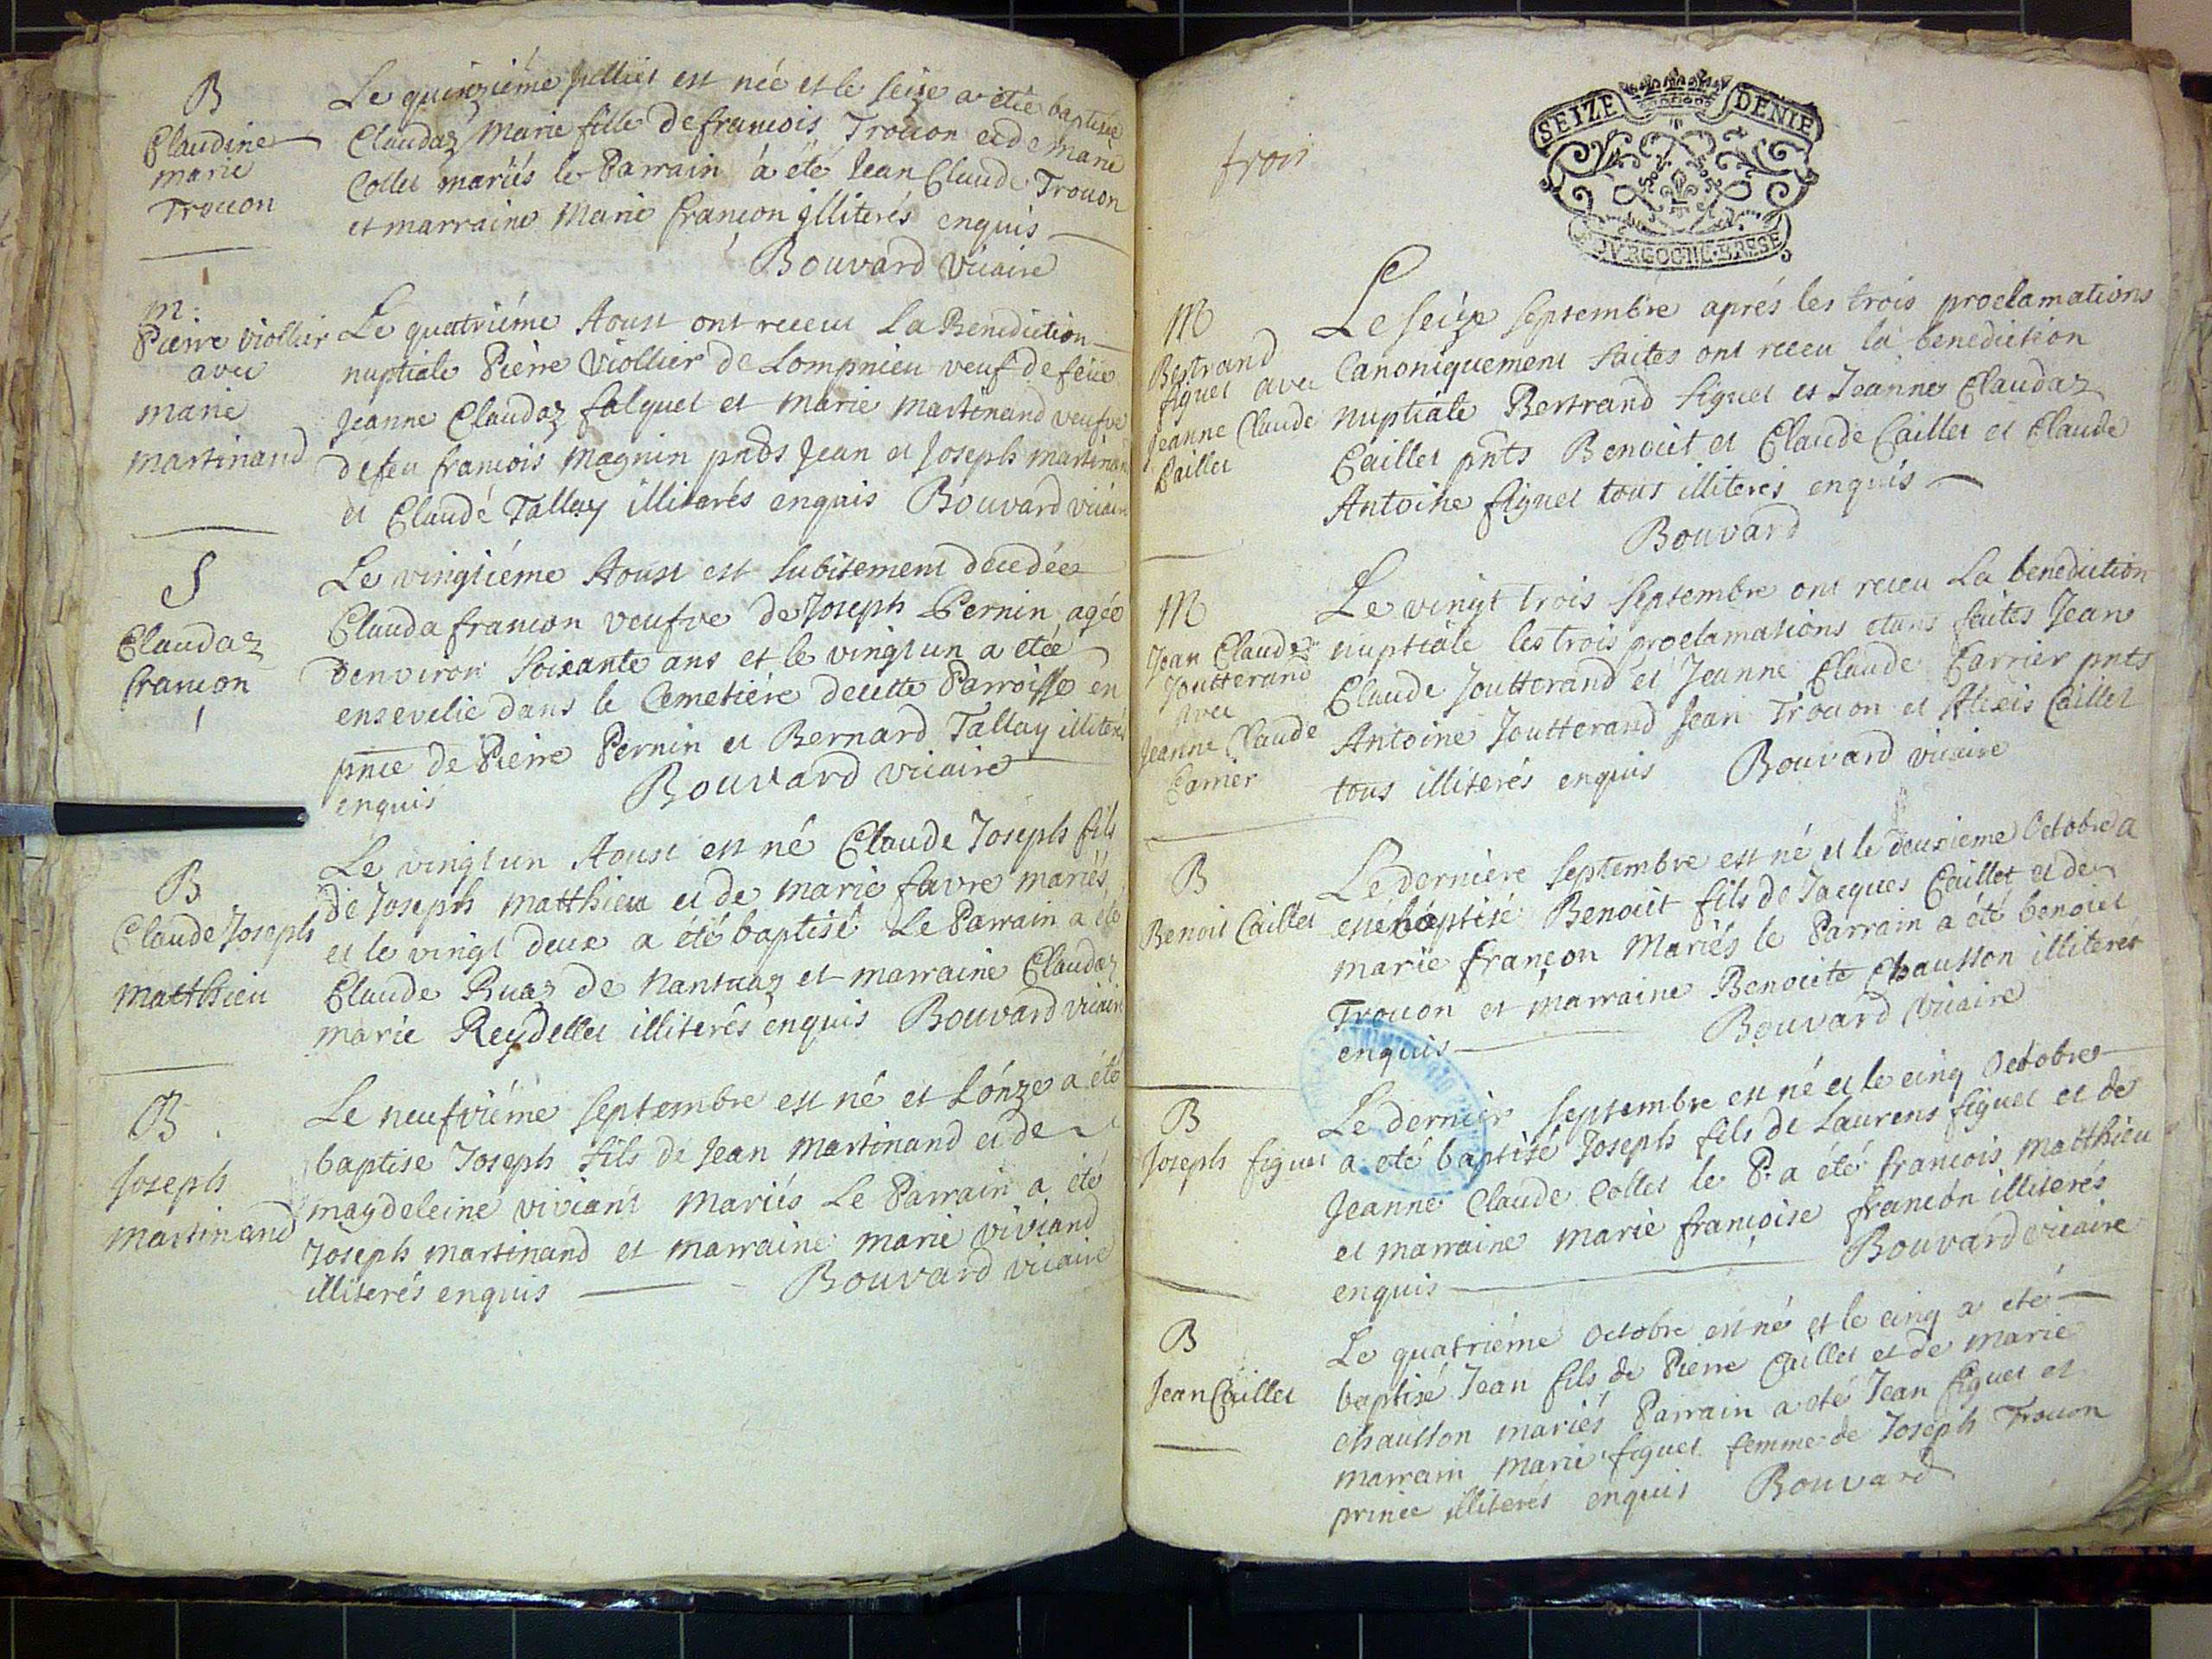 B
Claudine
marie
Trocon
Le quinziéme Juilliet est née et le seize a étée baptisée
Claudaz Marie fille de francois Trocon et de Marie
Collet mariés le Parrain á été Jean Claude Trocon
et marraine Marie françon illiterés enquis
Bouvard Vicaire
m.
Pierre Viollier
avec
marie
martinand
Le quatriéme Aoust ont receut La Benediction
nuptiale Piérre Viollier de Lompnieu veuf de feüe
Jeanne Claudaz falquet et marie martinand veufve
de feu francois Magnin pnts Jean et Joseph martinand
et Claude Tallay illiterés enquis Bouvard vicaire
S
Claudaz
francon
Le vingtiéme Aoust est subitement decedée
Clauda francon veufve de Joseph Pernin agée
denviron soixante ans et le vingt un a etée
ensevelie dans le Cemetiére decette Parroisse en
pnce de Pierre Pernin et Bernard Tallay illiterés
enquis Bouvard vicaire
B
Claude Joseph
Matthieu
Le vingt un Aoust est né Claude Joseph fils
de Joseph Matthieu et de Marie favre mariés
et le vingt deux a été baptisé Le Parrain a été
Claude Ruaz de Nantuaz et marraine Claudaz
marie Reydellet illiterés enquis Bouvard vicaire
B
Joseph
Martinand
Le neufviéme septembre est né et Lónze a été
baptise Joseph fils de Jean Martinand et de
magdeleine viviant Mariés Le Parrain a été
Joseph martinand et marraine marie viviand
illiterés enquis Bouvard vicaire
trois
SEIZE DENIE
BOVRGOGNE BRESSE
M
Bertrand
figuet avec
Jeanne Claude
Caillet
Le seize septembre aprés les trois proclamations
Canoniquement faites ont receu la benediction
nuptiale Bertrand figuet et Jeanne Claudaz
Caillet pnts Benoiit et Claude Caillet et Claude
Antoine figuet tous illiterés enquis
Bouvard
M
Jean Claude
Joutterand
avec
Jeanne Claude
Carrier
Le vingt trois septembre ont receu La benediction
nuptiale les trois proclamations etans faites Jean
Claude Joutterand et Jeanne Claude Carrier pnts
Antoine Joutterand Jean Trocon et Alexis Caillet
tous illiterés enquis Bouvard vicaire
B
Benoit Caillet
Le derniére septembre est né et le deuxieme Octobre a
été baptisé Benoiit fils de Jacques Caillet et de
marie françon Mariés le Parrain a été benoiet
Trocon et marraine Benoiite Chausson illiteres
enquis Bouvard Vicaire
B
Joseph figuet
Le dernier septembre est né et le cinq Octobre
a été baptisé Joseph fils de Laurens figuet et de
Jeanne Claude Collet le P. a été francois Matthieu
et marraine marie françoise francon illiterés
enquis Bouvard vicaire
B
Jean Caillet
Le quatriéme Octobre est né et le cinq a été
baptisé Jean fils de Pierre Caillet et de Marie
chausson mariés Parrain a eté Jean figuet et
marrain marie figuet femme de Joseph Trocon
prince illiterés enquis Bouvard